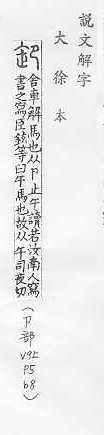 說文解字
大徐本
卸
舍車解馬也从卩止午讀若汝南人寫
書之寫臣鉉等曰午馬也故从午司夜切
(卩部 V9上 P5 b8)